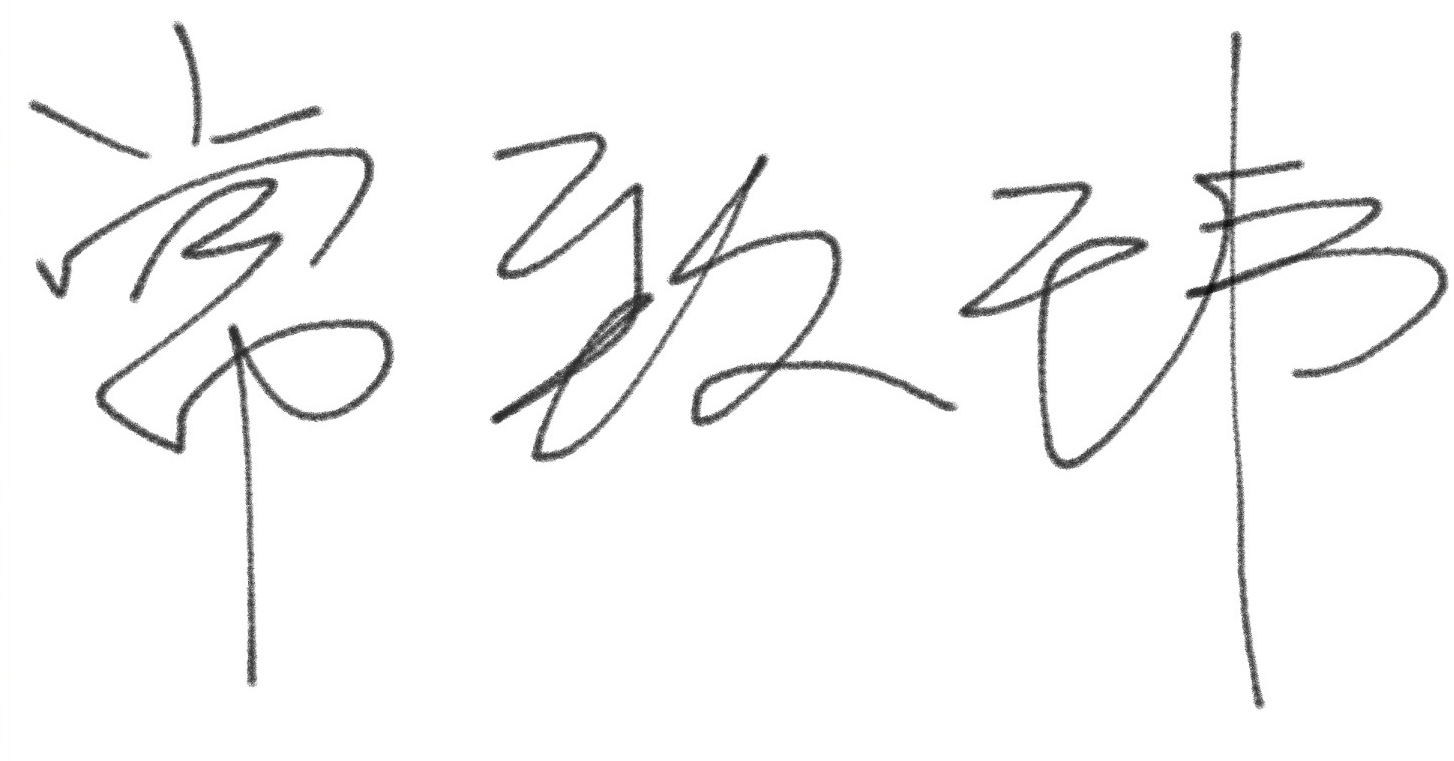 常致玮